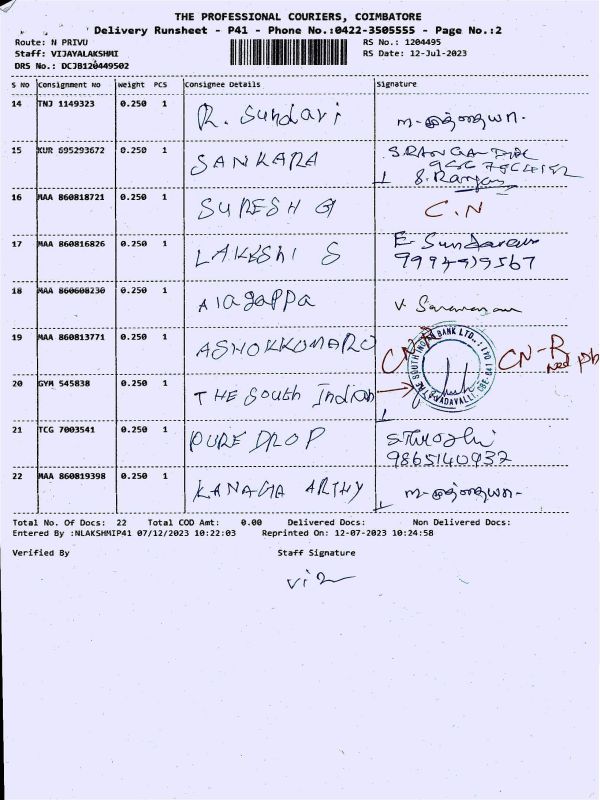 THE PROFESSIONAL COURIERS, COIMBATORE
Delivery Runsheet - P41 - Phone No.:0422-3505555 - Page No.:2
Route: N PRIVU RS No.: 1204495
Staff: VIJAYALAKSHMI RS Date: 12-Jul-2023
DRS No.: DCJB120449502
S No Consignment No Weight PCS Consignee Details Signature
14 TNJ 1149323 0.250 1 R. Sundari
15 KUR 695293672 0.250 1 SANKARA
S. Rangan
16 MAA 860818721 0.250 1 SURESH G C.N
17 MAA 860816826 0.250 1 LAKESHI S E Sundaram
9994919567
18 MAA 860608230 0.250 1 Alagappa V. Saravanan
19 MAA 860813771 0.250 1 ASHOKKUMARO CN-R CN-R
20 GYM 545838 0.250 1 THE South Indian
THE SOUTH INDIAN BANK LTD.,
VADAVALLI
21 TCG 7003541 0.250 1 PURE DROP
9865140937
22 MAA 860819398 0.250 1 KANAGA ARTHY
Total No. Of Docs: 22 Total COD Amt: 0.00 Delivered Docs: Non Delivered Docs:
Entered By :NLAKSHMIP41 07/12/2023 10:22:03 Reprinted On: 12-07-2023 10:24:58
Verified By Staff Signature